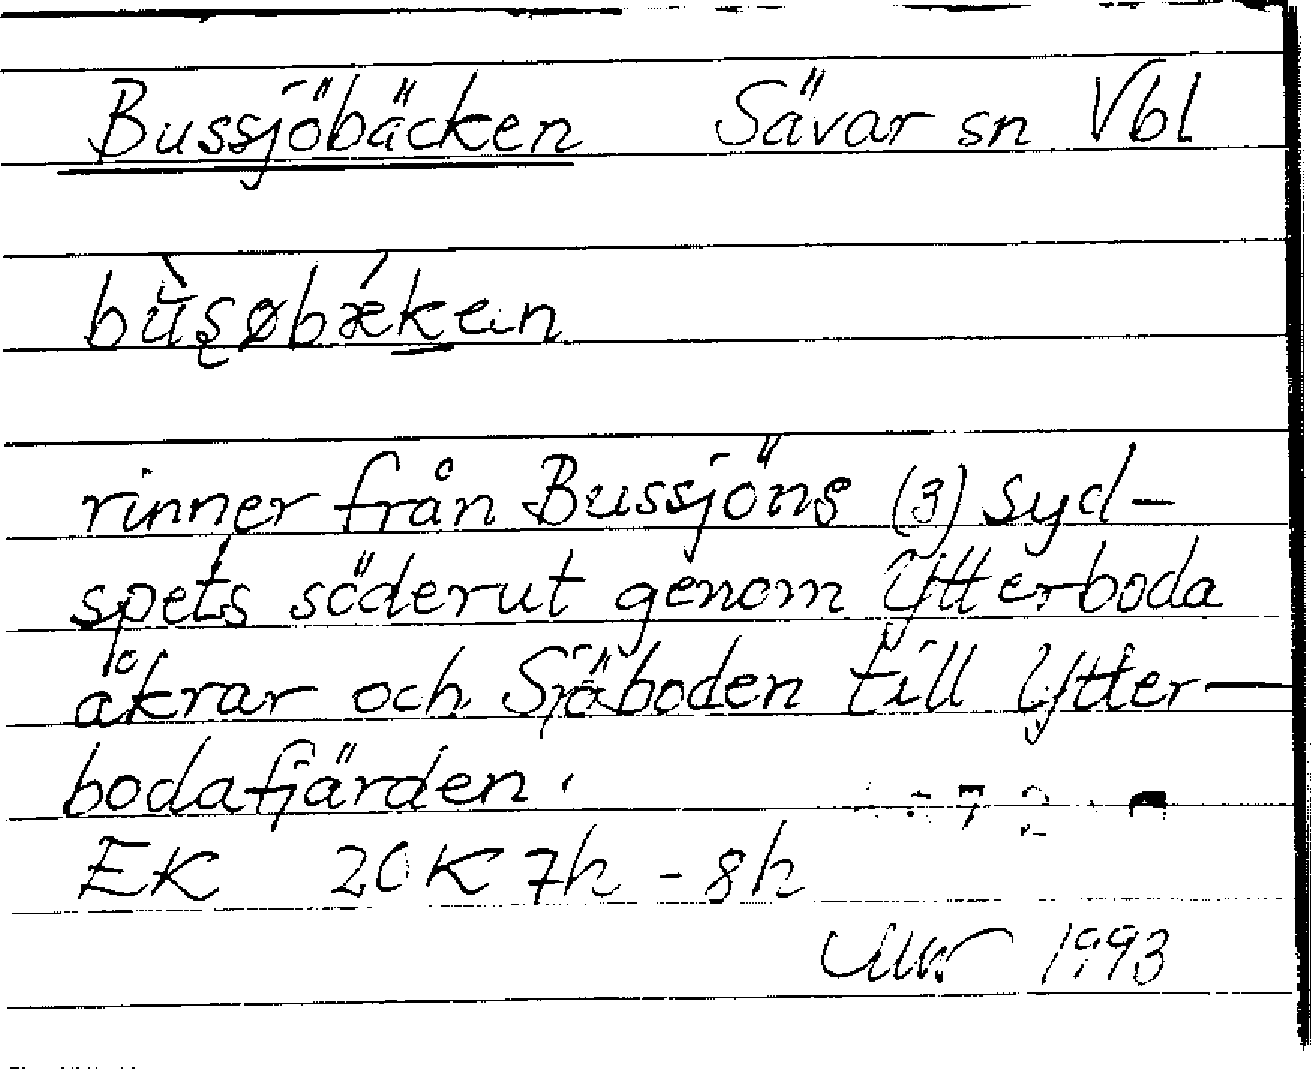 Bussjöbäcken Sävar sn Vbl
rinner från Bussjöns (3) syd-
spets söderut genom Ytterboda
åkrar och Sjöboden till Ytter-
bodafjärden.
EK 20K 7h - 8h
1993